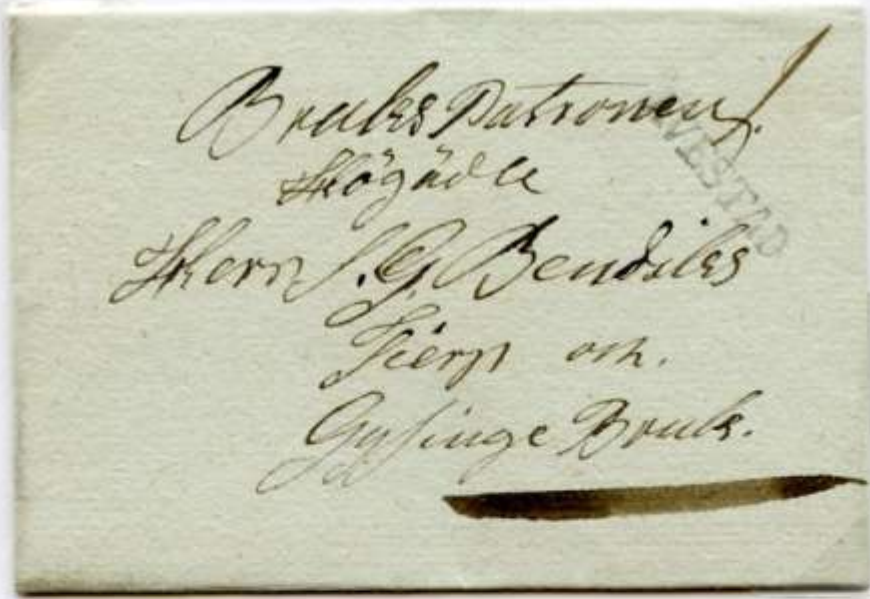 Bruks Patronen
Högädle
Herr S. G. Bendiks
Tierp och
Gysinge Bruk.
AVESTAD